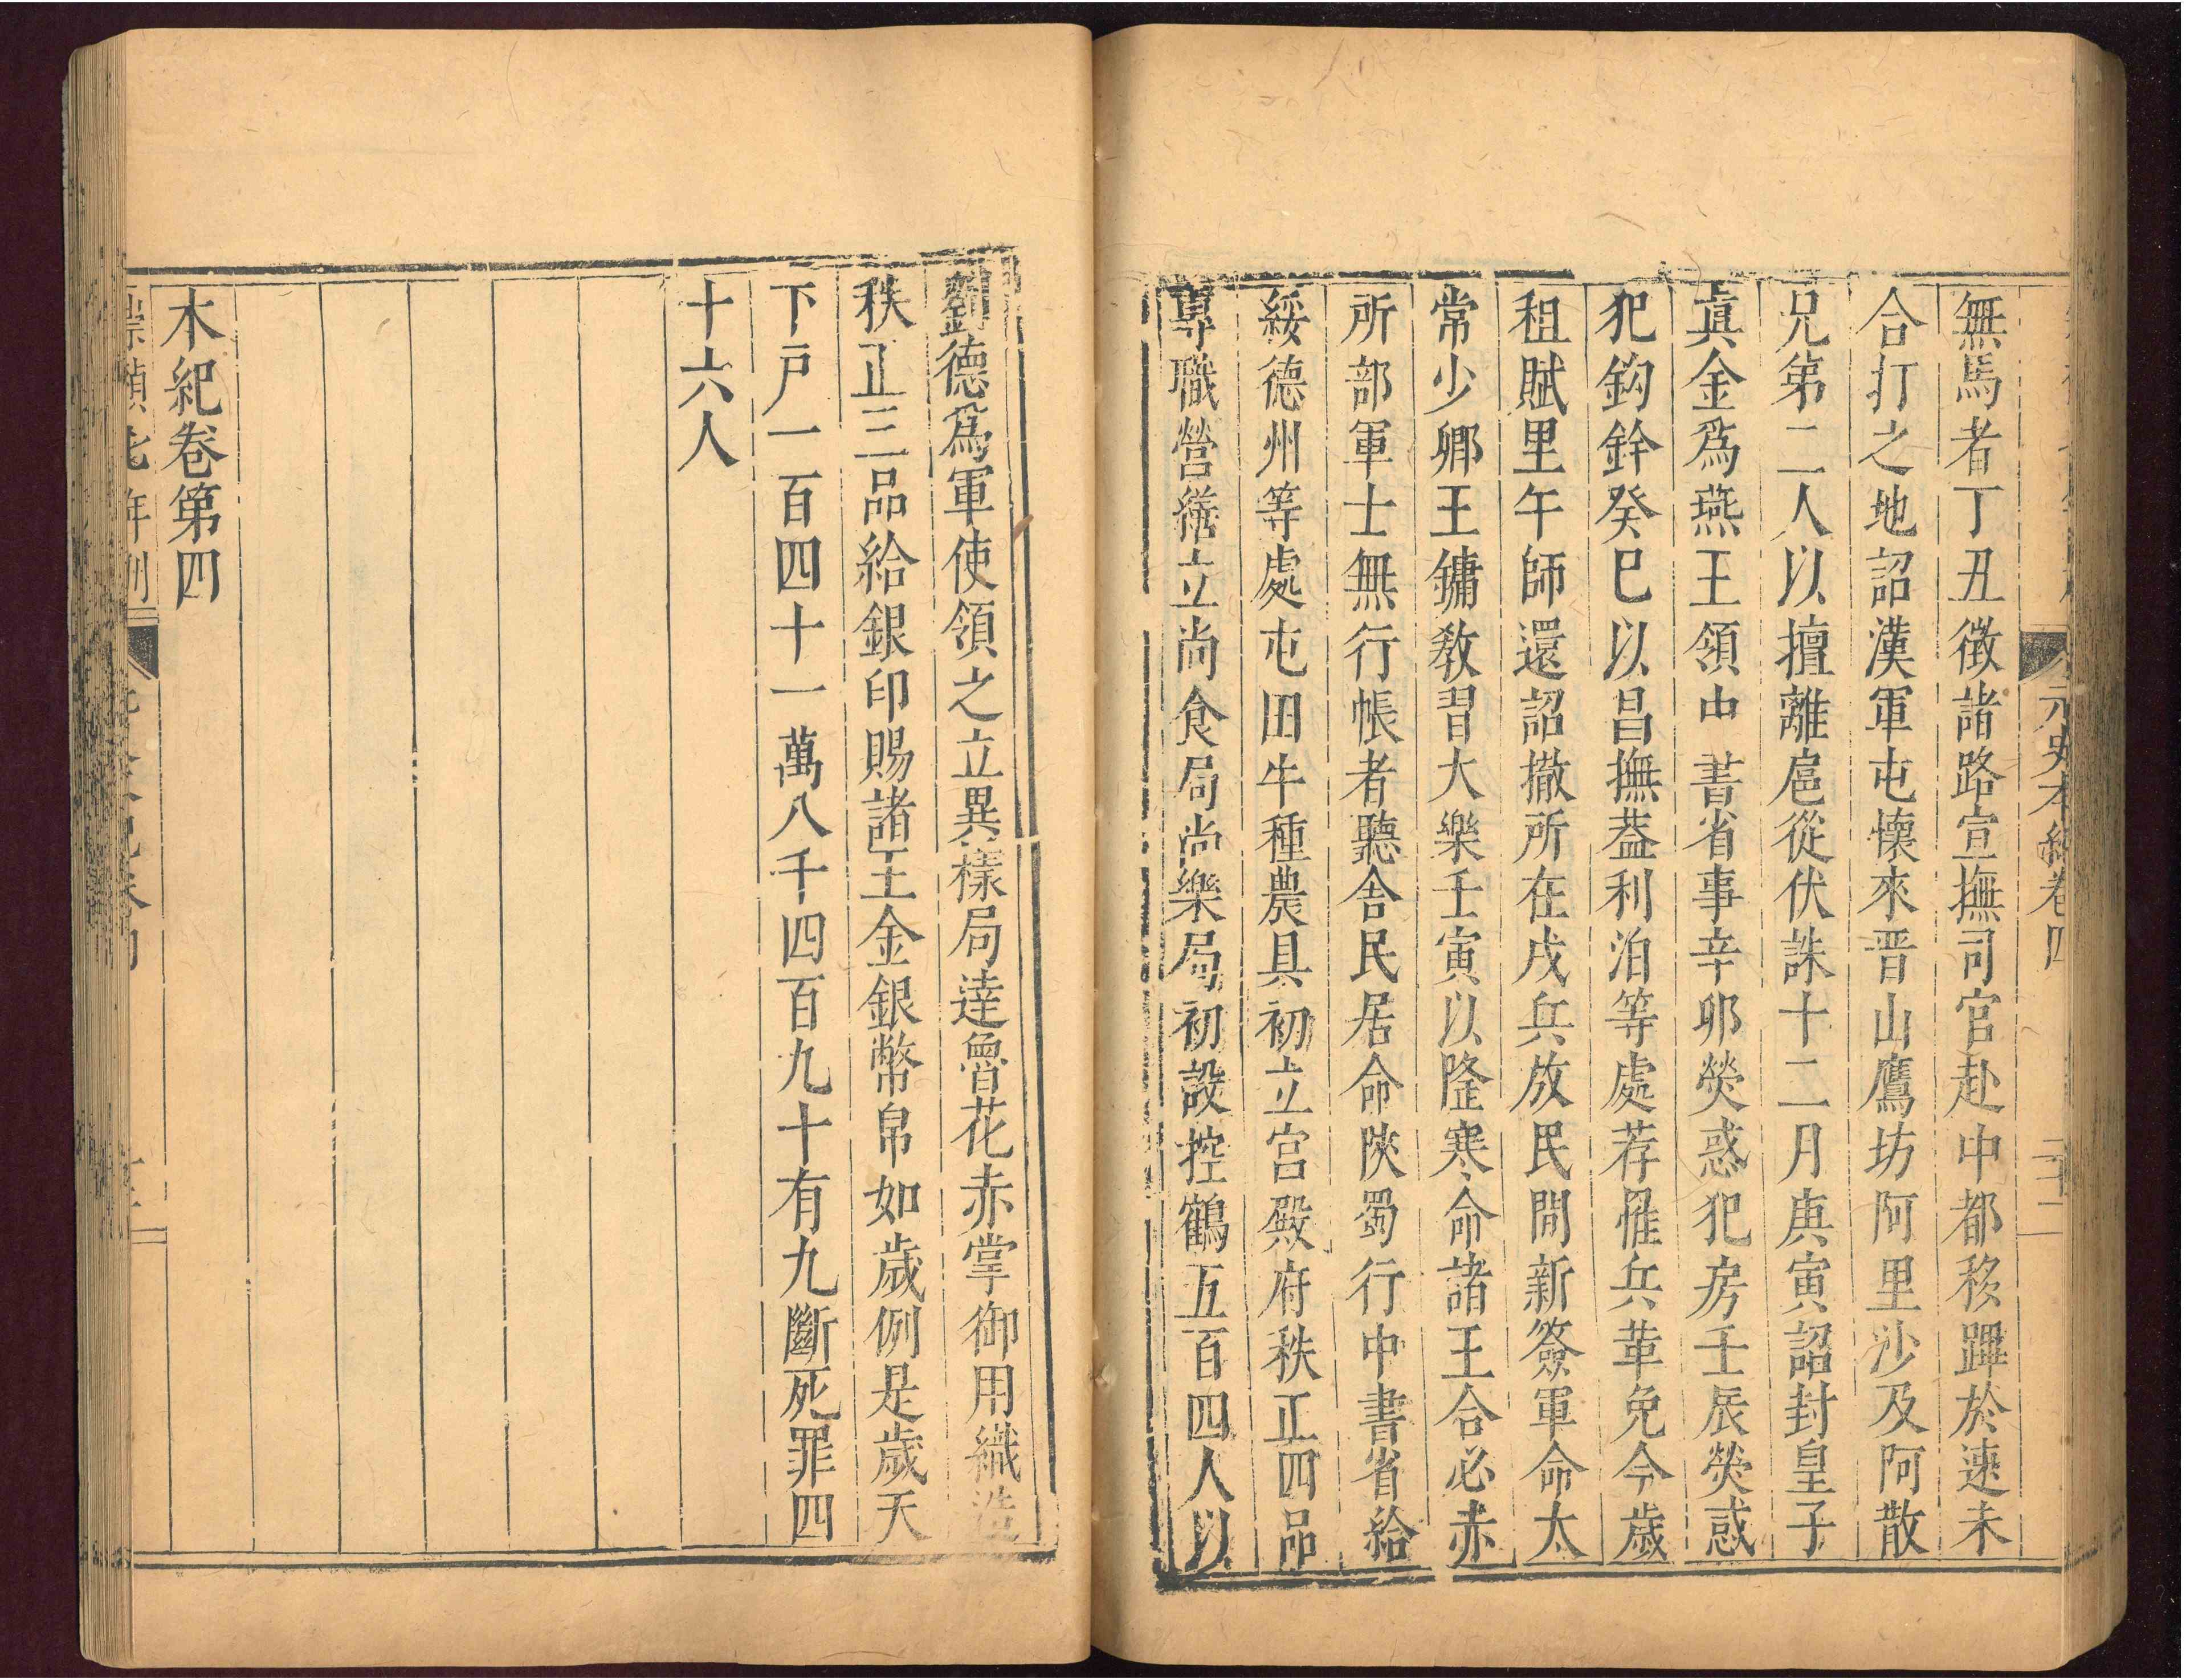 元史本紀卷四
無馬者丁丑徵諸路宣撫司官赴中都移蹕於速未
合打之地詔漢軍屯懷來晋山鷹坊阿里沙及阿散
兄弟二人以擅離扈從伏誅十二月庚寅詔封皇子
真金爲燕王領中書省事辛卯熒惑犯房壬辰熒惑
犯鈎鈐癸巳以昌撫蓋利泊等處荐罹兵革免今歲
租賦里午師還詔撤所在戍兵放民間新簽軍命太
常少卿王鏞教習大樂壬寅以隆寒命諸王合必赤
所部軍士無行帳者聽舍民居命陝蜀行中書省給
綏德州等處屯田牛種農具初立宮殿府秩正四品
專職營繕立尚食局尚樂局初設控鶴五百四人以
劉德爲軍使領之立異樣局達魯花赤掌御用織造
秩正三品給銀印賜諸王金銀幣帛如歲例是歲天
下戸一百四十一萬八千四百九十有九斷死罪四
十六人
本紀卷第四